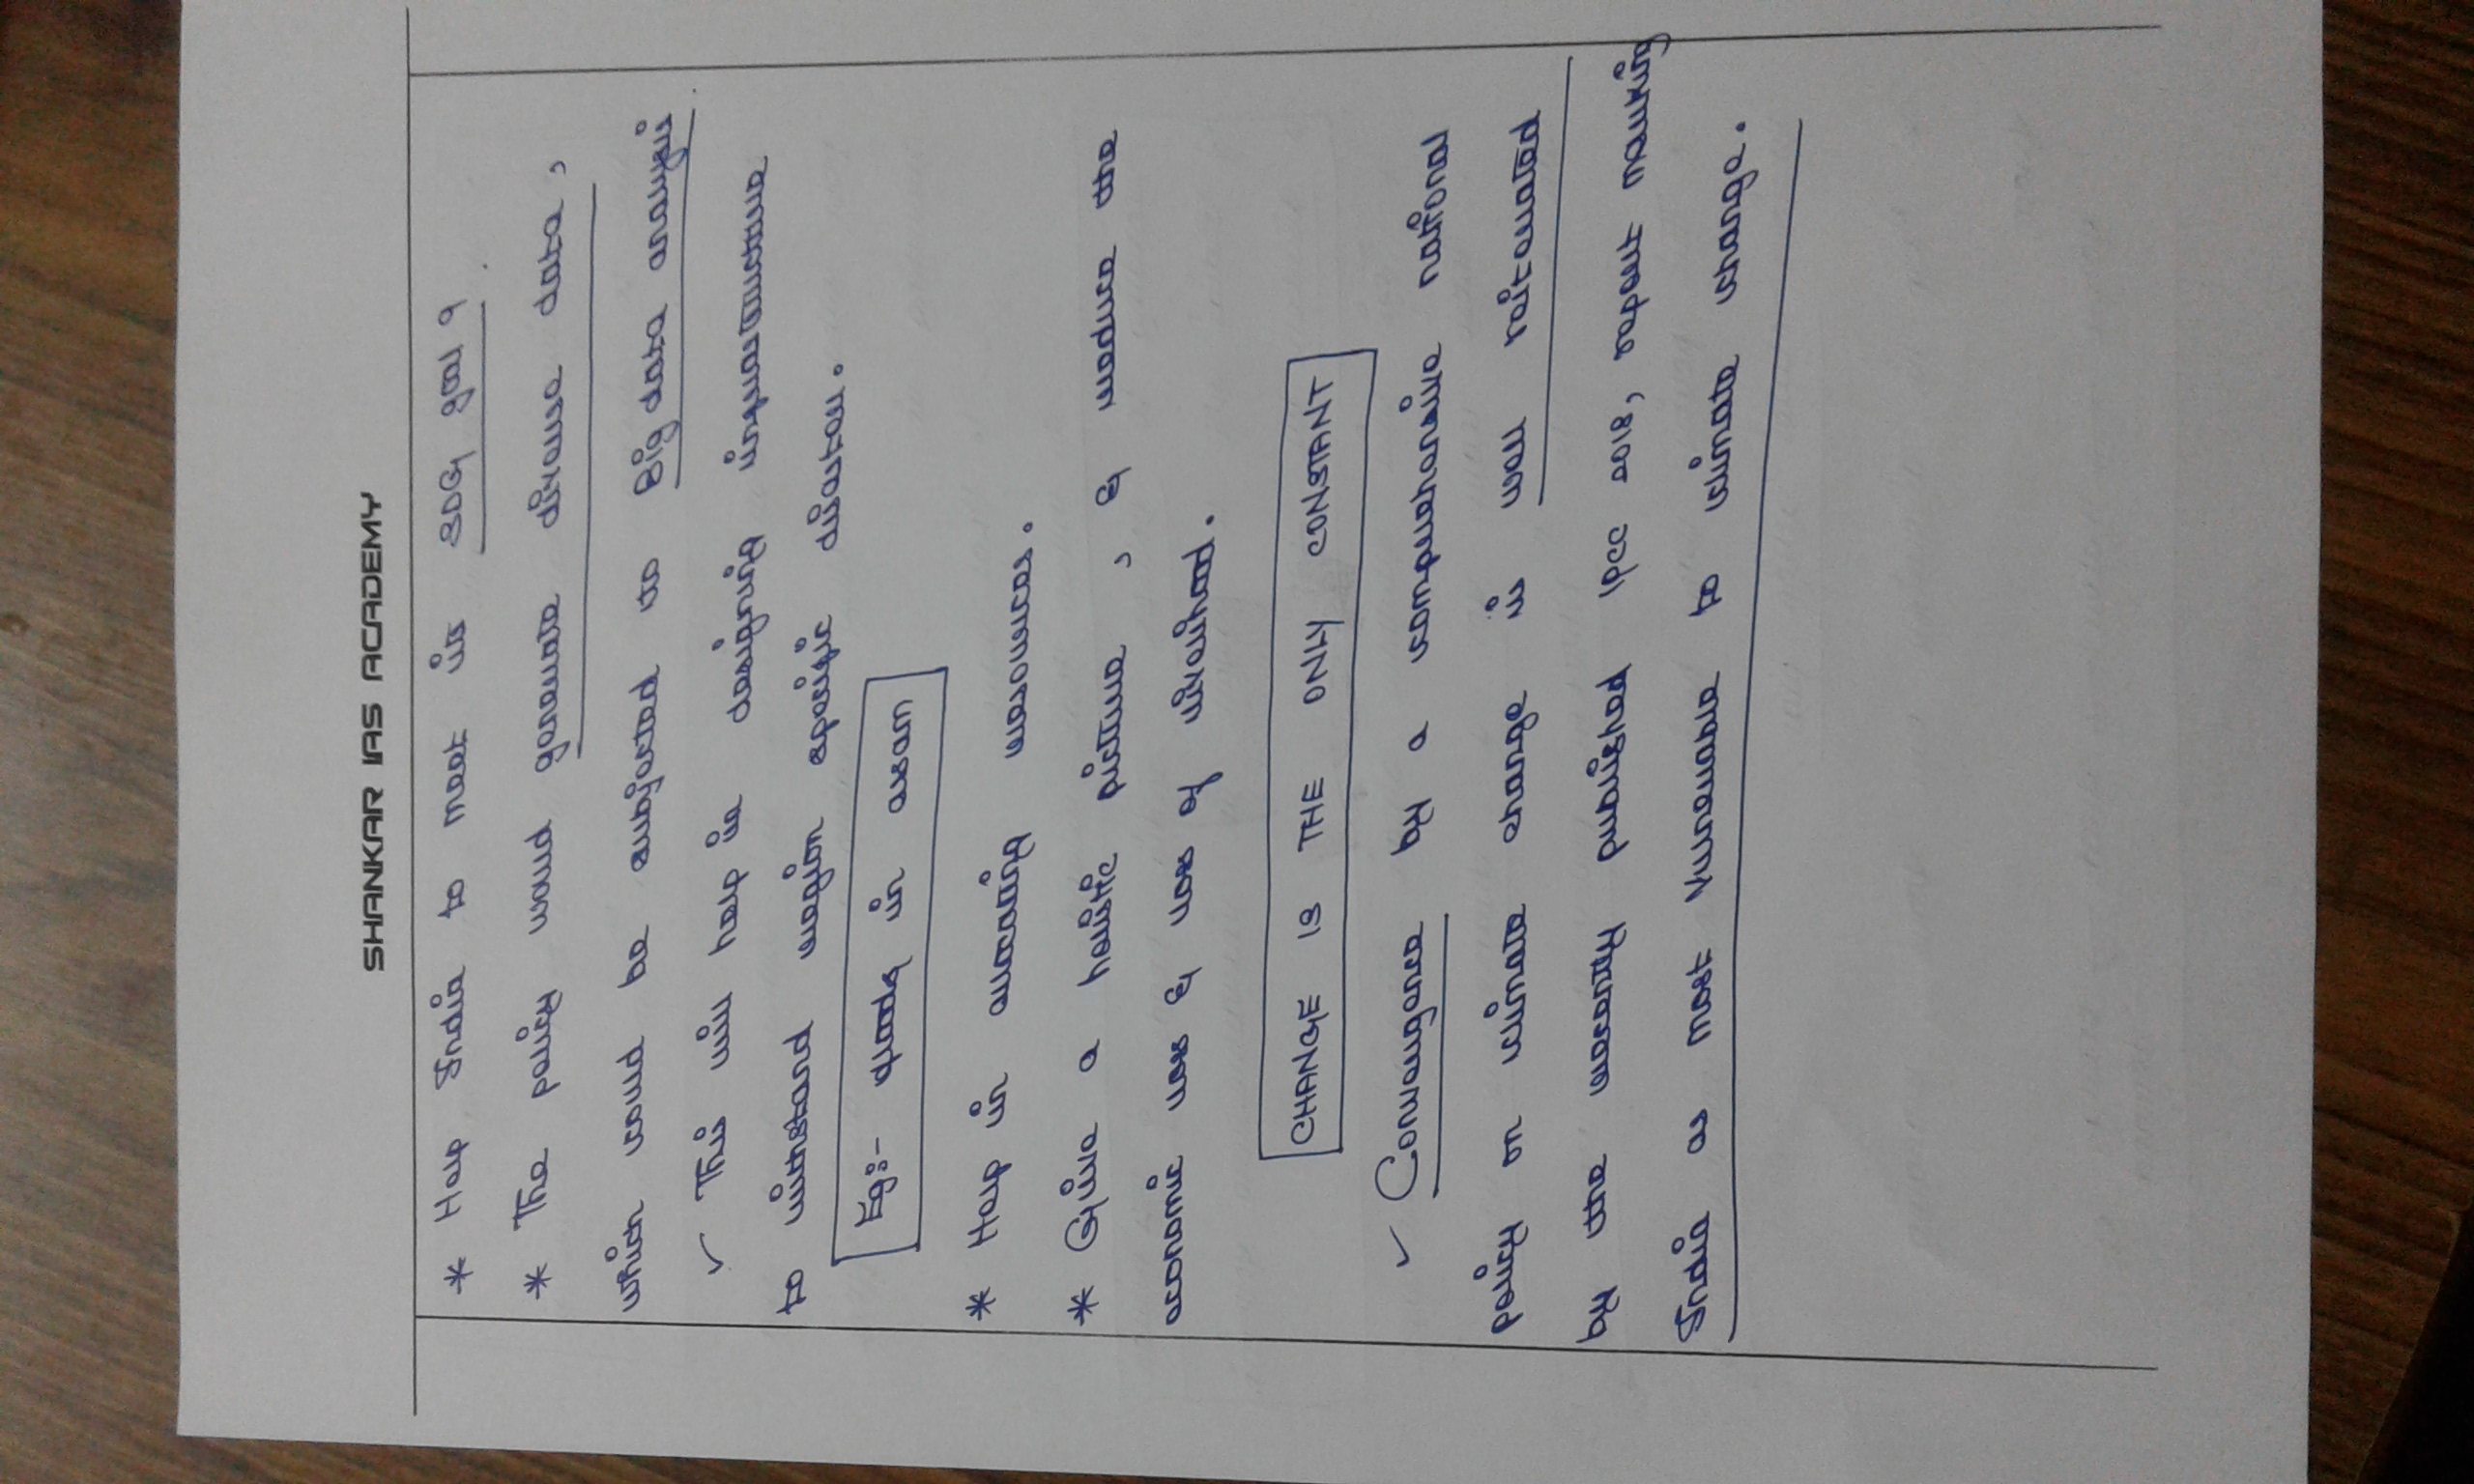 SHANKAR IAS ACADEMY
* Help India to meet its SDG goal 9.
* The policy would generate diverse data,
which could be subjected to Big data analysis.
✓ This will help in designing infrastructure
to withstand region specific disaster.
Eg:- floods in assam
* Help in allocating resources.
* Give a holistic picture, & reduce the
economic loss & loss of livelihood.
CHANGE IS THE ONLY CONSTANT
✓ Convergence by a comprehensive national
policy on climate change is well reiterated
by the recently published IPCC 2018, report marking
India as most Vulnerable to climate change.